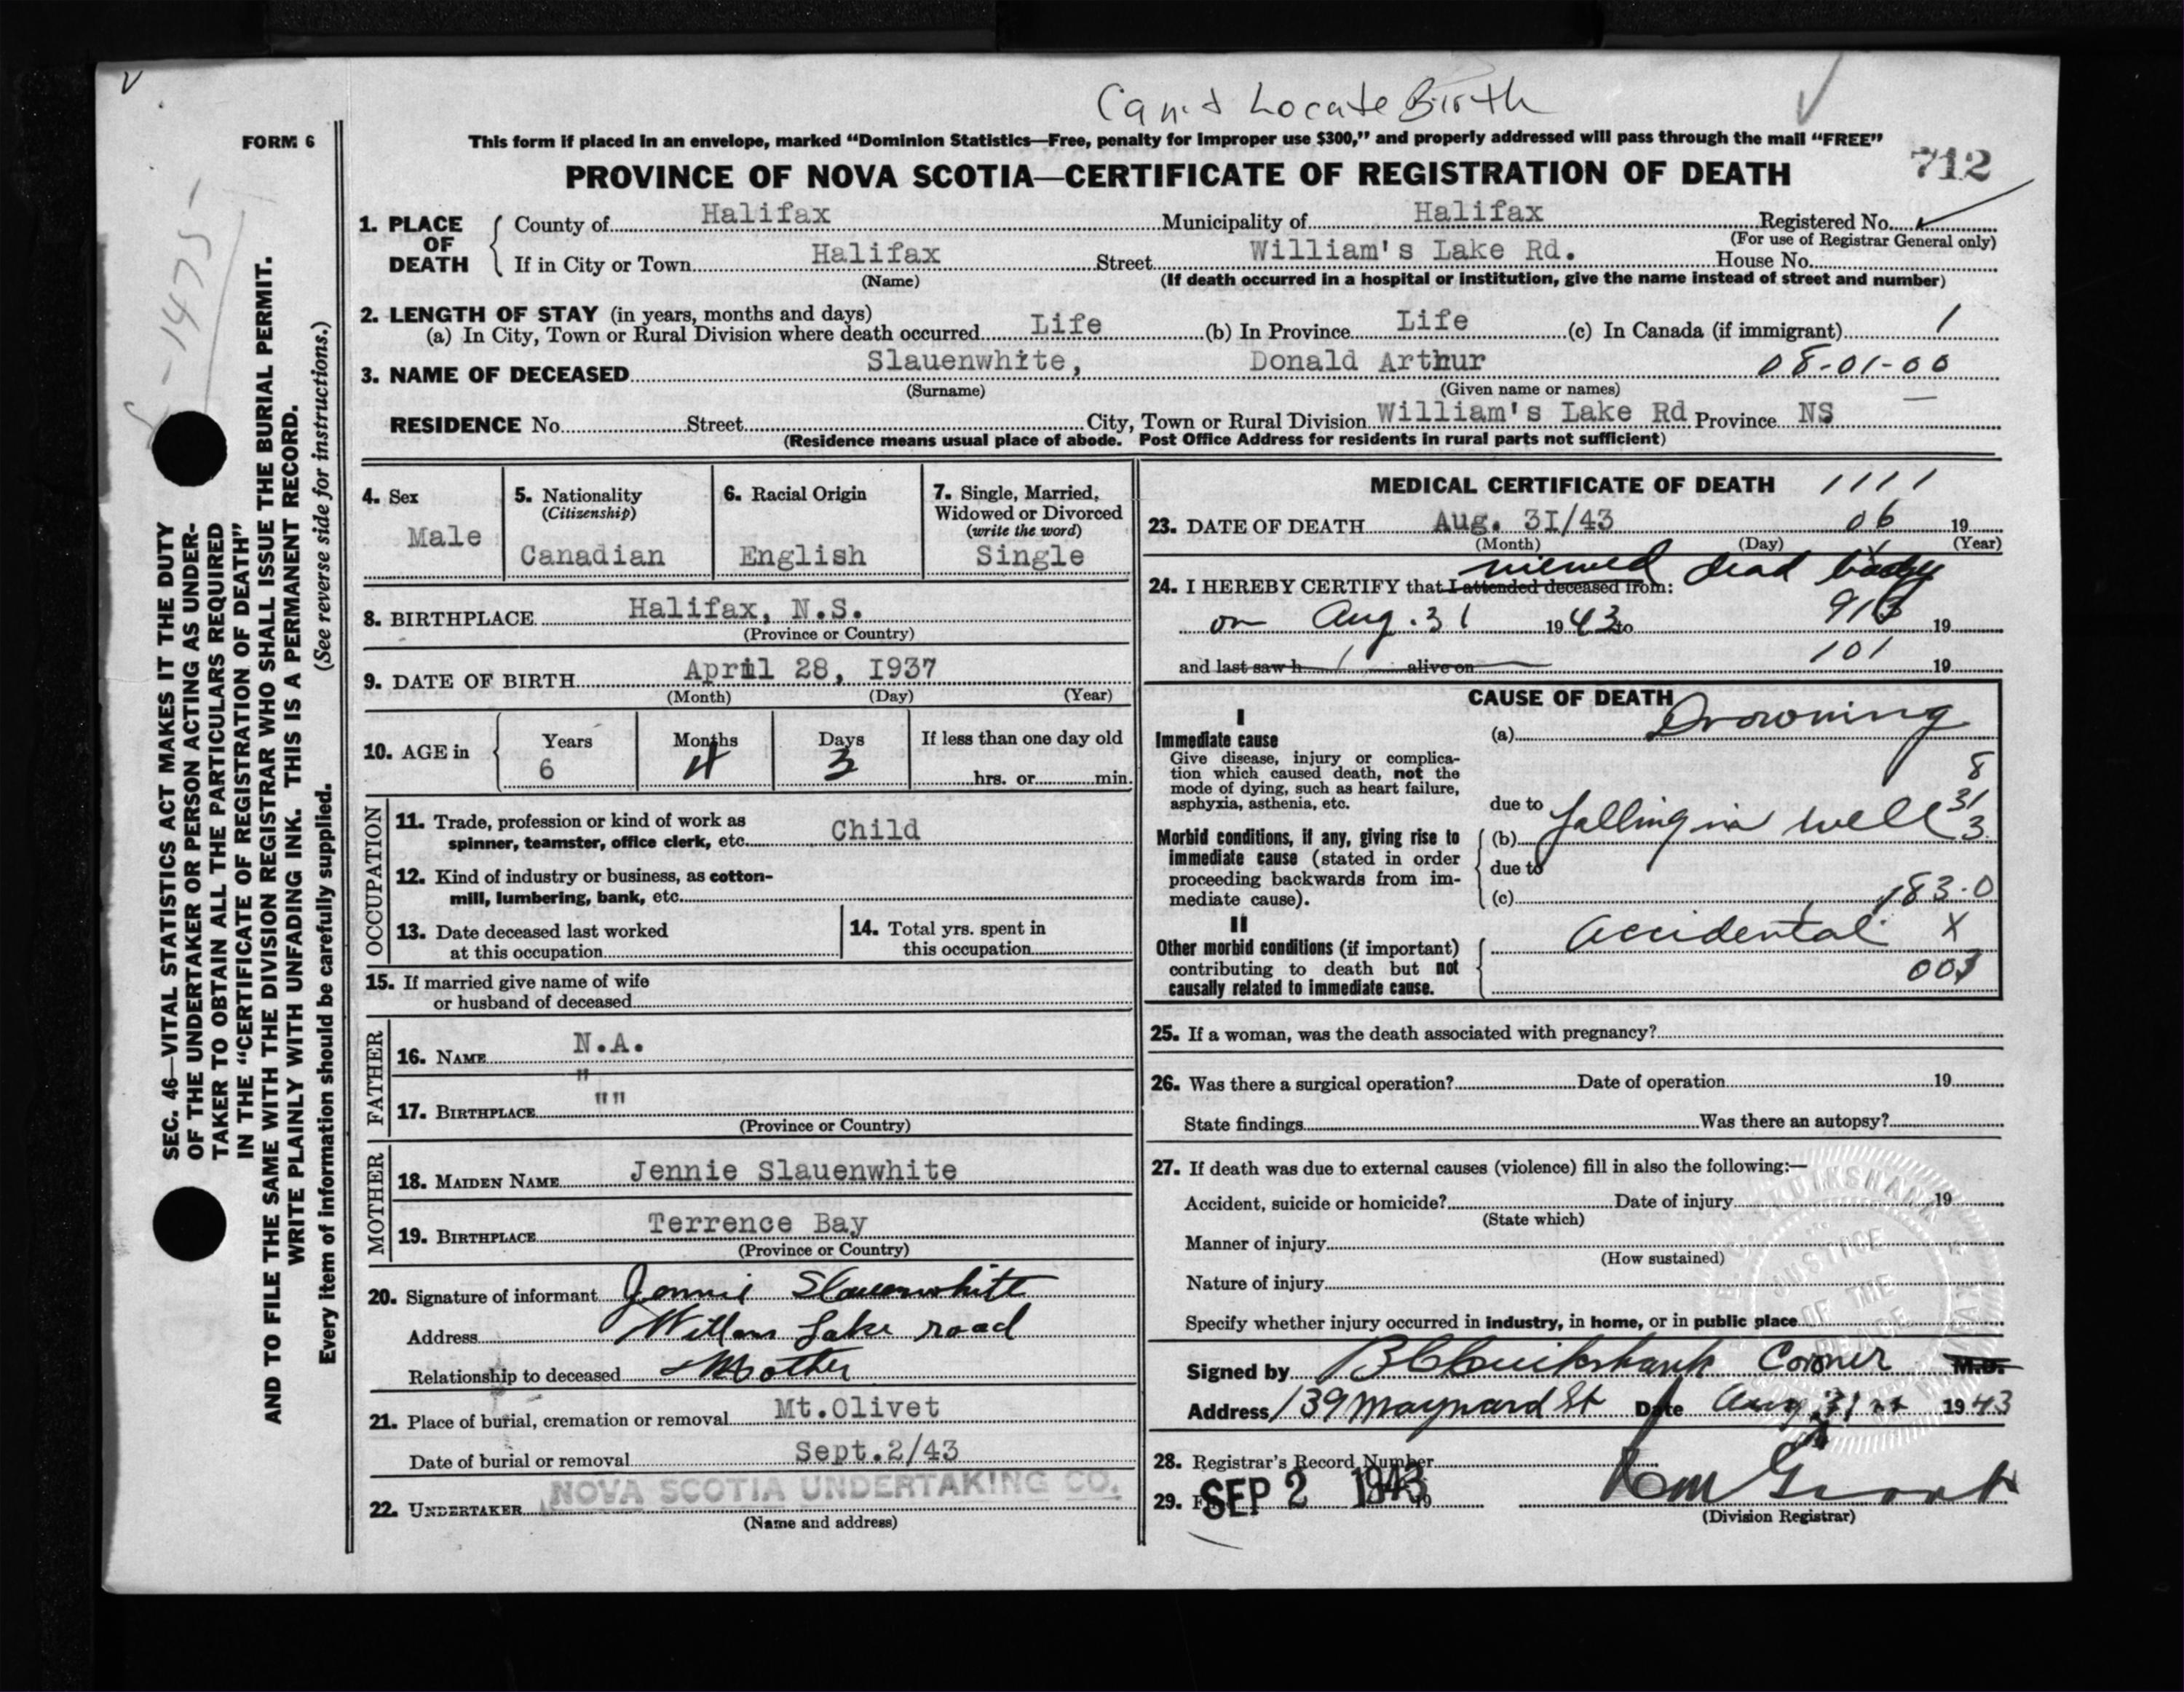 Can't Locate Birth
FORM 6
This form if placed in an envelope, marked “Dominion Statistics—Free, penalty for improper use $300,” and properly addressed will pass through the mail “FREE”
PROVINCE OF NOVA SCOTIA—CERTIFICATE OF REGISTRATION OF DEATH
712
1. PLACE OF DEATH
County of Halifax Municipality of Halifax Registered No.
(For use of Registrar General only)
If in City or Town Halifax Street William's Lake Rd. House No.
(Name) (If death occurred in a hospital or institution, give the name instead of street and number)
2. LENGTH OF STAY (in years, months and days)
(a) In City, Town or Rural Division where death occurred Life (b) In Province Life (c) In Canada (if immigrant) 1
3. NAME OF DECEASED Slauenwhite, Donald Arthur 08-01-00
(Surname) (Given name or names)
RESIDENCE No. Street City, Town or Rural Division William's Lake Rd Province NS
(Residence means usual place of abode. Post Office Address for residents in rural parts not sufficient)
4. Sex
Male
5. Nationality
(Citizenship)
Canadian
6. Racial Origin
English
7. Single, Married,
Widowed or Divorced
(write the word)
Single
8. BIRTHPLACE Halifax, N.S.
(Province or Country)
9. DATE OF BIRTH April 28, I937
(Month) (Day) (Year)
10. AGE in
Years Months Days If less than one day old
6 4 3 hrs. or min.
OCCUPATION
11. Trade, profession or kind of work as
spinner, teamster, office clerk, etc. Child
12. Kind of industry or business, as cotton-
mill, lumbering, bank, etc.
13. Date deceased last worked
at this occupation
14. Total yrs. spent in
this occupation
15. If married give name of wife
or husband of deceased
FATHER
16. NAME N.A.
"
17. BIRTHPLACE ""
(Province or Country)
MOTHER
18. MAIDEN NAME Jennie Slauenwhite
19. BIRTHPLACE Terrence Bay
(Province or Country)
20. Signature of informant Jennie Slauenwhite
Address Willams Lake road
Relationship to deceased Mother
21. Place of burial, cremation or removal Mt.Olivet
Date of burial or removal Sept.2/43
22. UNDERTAKER NOVA SCOTIA UNDERTAKING CO.
(Name and address)
MEDICAL CERTIFICATE OF DEATH 1111
23. DATE OF DEATH Aug. 3I/43 06 19
(Month) (Day) (Year)
viewed dead body
24. I HEREBY CERTIFY that I attended deceased from:
on Aug. 31 1943 to 913 19
and last saw h alive on 101 19
CAUSE OF DEATH
I
Immediate cause
Give disease, injury or complica-
tion which caused death, not the
mode of dying, such as heart failure,
asphyxia, asthenia, etc.
(a) Drowning
8
31
3
due to
Morbid conditions, if any, giving rise to
immediate cause (stated in order
proceeding backwards from im-
mediate cause).
(b) falling in well
due to
(c) 183.0
II
Other morbid conditions (if important)
contributing to death but not
causally related to immediate cause.
accidental X
003
25. If a woman, was the death associated with pregnancy?
26. Was there a surgical operation? Date of operation 19
State findings Was there an autopsy?
27. If death was due to external causes (violence) fill in also the following:—
Accident, suicide or homicide? Date of injury 19
(State which)
Manner of injury
(How sustained)
Nature of injury
Specify whether injury occurred in industry, in home, or in public place
JUSTICE
OF THE
PEACE
Signed by B C Cruikshank Coroner M.D.
Address 139 Maynard St Date Aug 31st 1943
28. Registrar's Record Number
29. SEP 2 1943 19
(Division Registrar)
SEC. 46—VITAL STATISTICS ACT MAKES IT THE DUTY
OF THE UNDERTAKER OR PERSON ACTING AS UNDER-
TAKER TO OBTAIN ALL THE PARTICULARS REQUIRED
IN THE “CERTIFICATE OF REGISTRATION OF DEATH”
AND TO FILE THE SAME WITH THE DIVISION REGISTRAR WHO SHALL ISSUE THE BURIAL PERMIT.
WRITE PLAINLY WITH UNFADING INK. THIS IS A PERMANENT RECORD.
Every item of information should be carefully supplied. (See reverse side for instructions.)